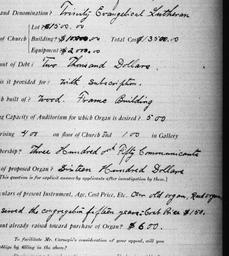 and Denomination? Trinity Evangelical Lutheran
Lot $1500.00
of Church Building? $10000.00 Total Cost $13500.00
Equipment $2,000.00
unt of Debt: Two Thousand Dollars.
is it provided for: with subscription.
ch built of? Wood. Frame Building
ng Capacity of Auditorium for which Organ is desired? 500
rising 400 on floor of Church and 100 in Gallery
bership? Three Hundred and Fifty Communicants
of proposed Organ? Sixteen Hundred Dollars
This question is for explicit answer by applicants after investigation by them.)
ulars of present Instrument, Age, Cost Price, Etc. An old organ,
served the congregation fifteen years - Cost Price $150.
unt already raised toward purchase of Organ? $600.
To facilitate Mr. Carnegie's consideration of your appeal, will you
oblige by filling in the above?